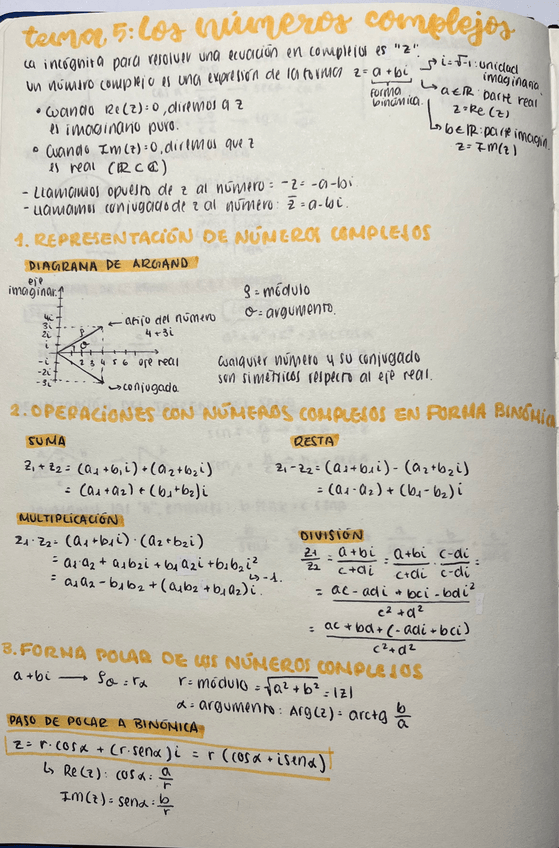 tema 5: Los números complejos
La incógnita para resolver una ecuación en complejos es "z"
un número complejo es una expresión de la forma z = a + bi
forma binómica.
→ i = √-1 : unidad imaginaria
→ a ∈ ℝ : parte real
z = Re(z)
→ b ∈ ℝ : parte imagin.
z = Im(z)
• Cuando Re(z)=0, diremos a z
es imaginario puro.
• Cuando Im(z)=0, diremos que z
es real (ℝ ⊂ ℂ)
- Llamamos opuesto de z al número = -z = -a-bi
- Llamamos conjugado de z al número: z̄ = a-bi.
1. REPRESENTACIÓN DE NÚMEROS COMPLEJOS
DIAGRAMA DE ARGAND
eje
imaginar.
4i
3i
2i
i
-i
-2i
-3i
1 2 3 4 5 6 eje real
ρ
θ
← afijo del número
4+3i
→ conjugado
ρ = módulo
θ = argumento.
Cualquier número y su conjugado
son simétricos respecto al eje real.
2. OPERACIONES CON NÚMEROS COMPLEJOS EN FORMA BINÓMICA
SUMA
z1 + z2 = (a1+b1i) + (a2+b2i)
= (a1+a2) + (b1+b2)i
RESTA
z1 - z2 = (a1+b1i) - (a2+b2i)
= (a1-a2) + (b1-b2)i
MULTIPLICACIÓN
z1 · z2 = (a1+b1i) · (a2+b2i)
= a1a2 + a1b2i + b1a2i + b1b2i²
↳ -1.
= a1a2 - b1b2 + (a1b2 + b1a2)i
DIVISIÓN
z1/z2 = a+bi/c+di = a+bi/c+di · c-di/c-di =
= ac - adi + bci - bdi²/c²+d²
= ac + bd + (-adi + bci)/c²+d²
3. FORMA POLAR DE LOS NÚMEROS COMPLEJOS
a+bi → ρθ = rα
r = módulo = √a²+b² = |z|
α = argumento: Arg(z) = arctg b/a
PASO DE POLAR A BINÓMICA
z = r·cosα + (r·senα)i = r(cosα + isenα)
↳ Re(z): cosα = a/r
Im(z) = senα = b/r